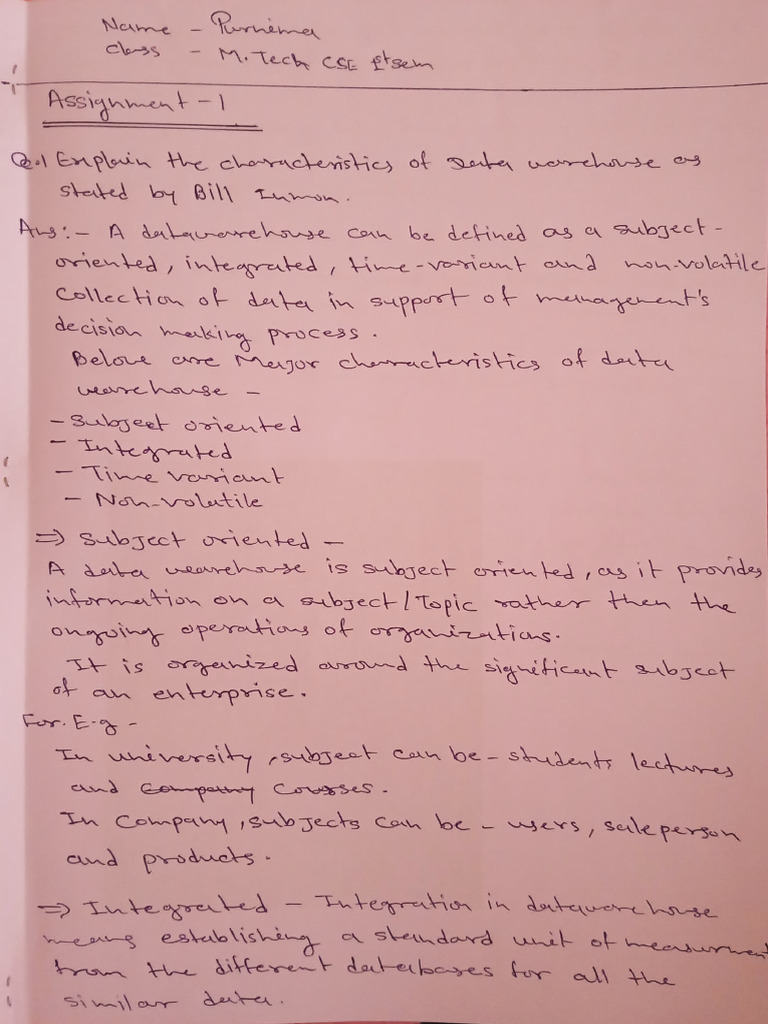 Name - Purnima
Class - M.Tech CSE 1st sem
Assignment - 1
Q.1 Explain the characteristics of Data warehouse as
stated by Bill Inmon.
Ans:- A datawarehouse can be defined as a subject-
oriented, integrated, time-variant and non-volatile
collection of data in support of management's
decision making process.
Belove are Major characteristics of data
warehouse -
- Subject oriented
- Integrated
- Time variant
- Non-volatile
⇒ Subject oriented -
A data warehouse is subject oriented, as it provides
information on a subject/Topic rather then the
ongoing operations of organizations.
It is organized around the significant subject
of an enterprise.
For. E.g -
In university, subject can be - students, lectures
and Company Courses.
In Company, subjects can be - users, sale person
and products.
⇒ Integrated - Integration in datawarehouse
means establishing a standard unit of measurment
from the different databases for all the
similar data.